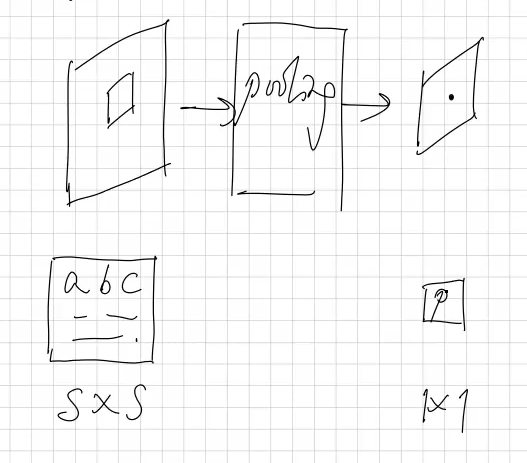 pooling
a b c
p
S x S
1 x 1